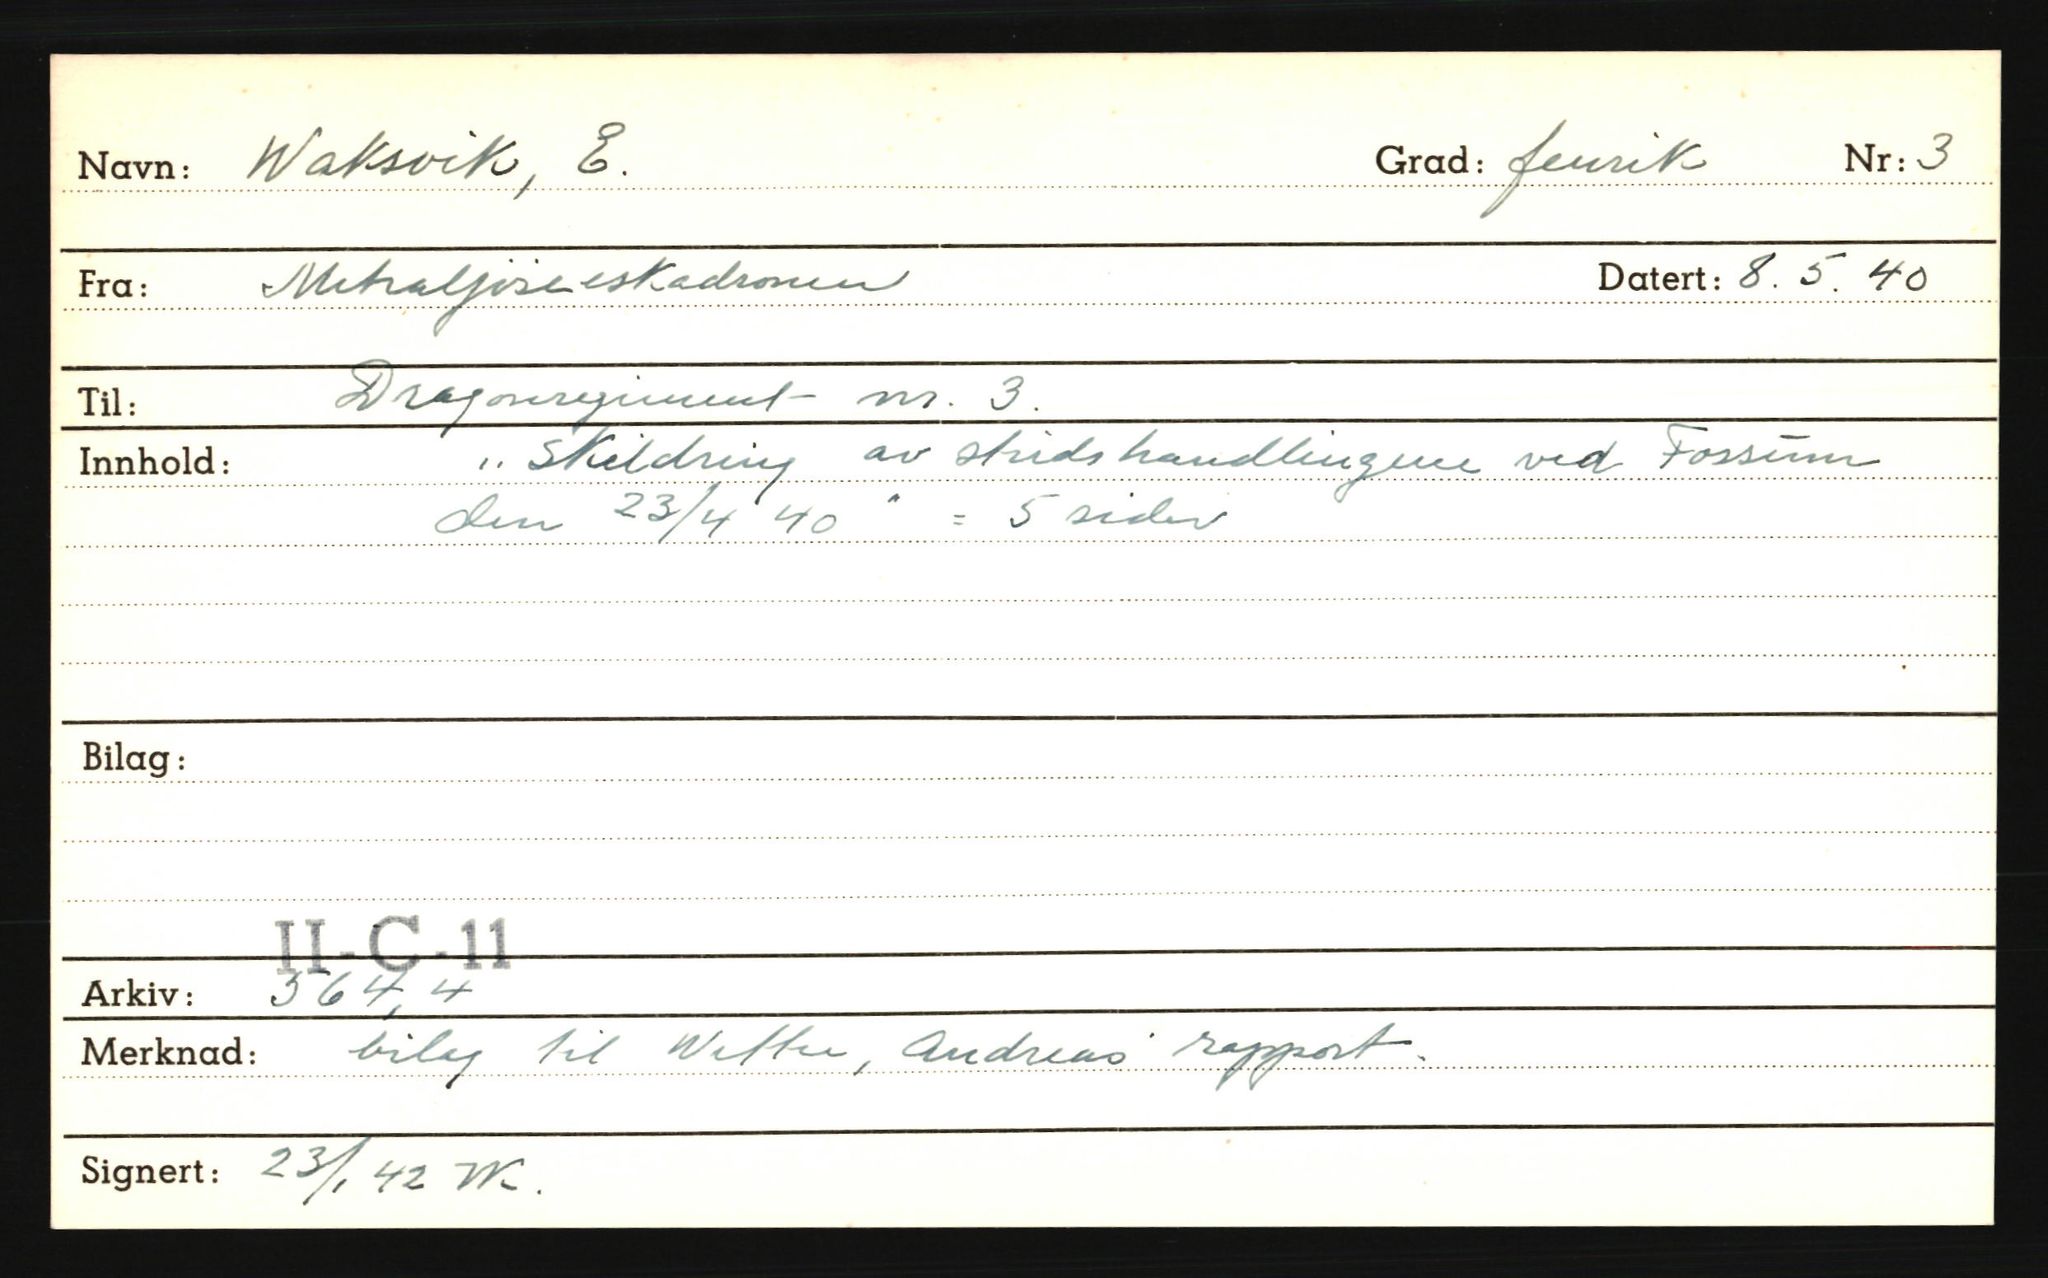 Navn: Waksvik, E. Grad: fenrik Nr: 3
Fra: Mitraljöseeskadronen Datert: 8. 5. 40
Til: Dragonregiment nr. 3.
Innhold: „Skildring av stridshandlingene ved Fossum
den 23/4 40" = 5 sider
Bilag:
II-C-11
Arkiv: 564,4
Merknad: bilag til Andreas' rapport.
Signert: 23/1 42